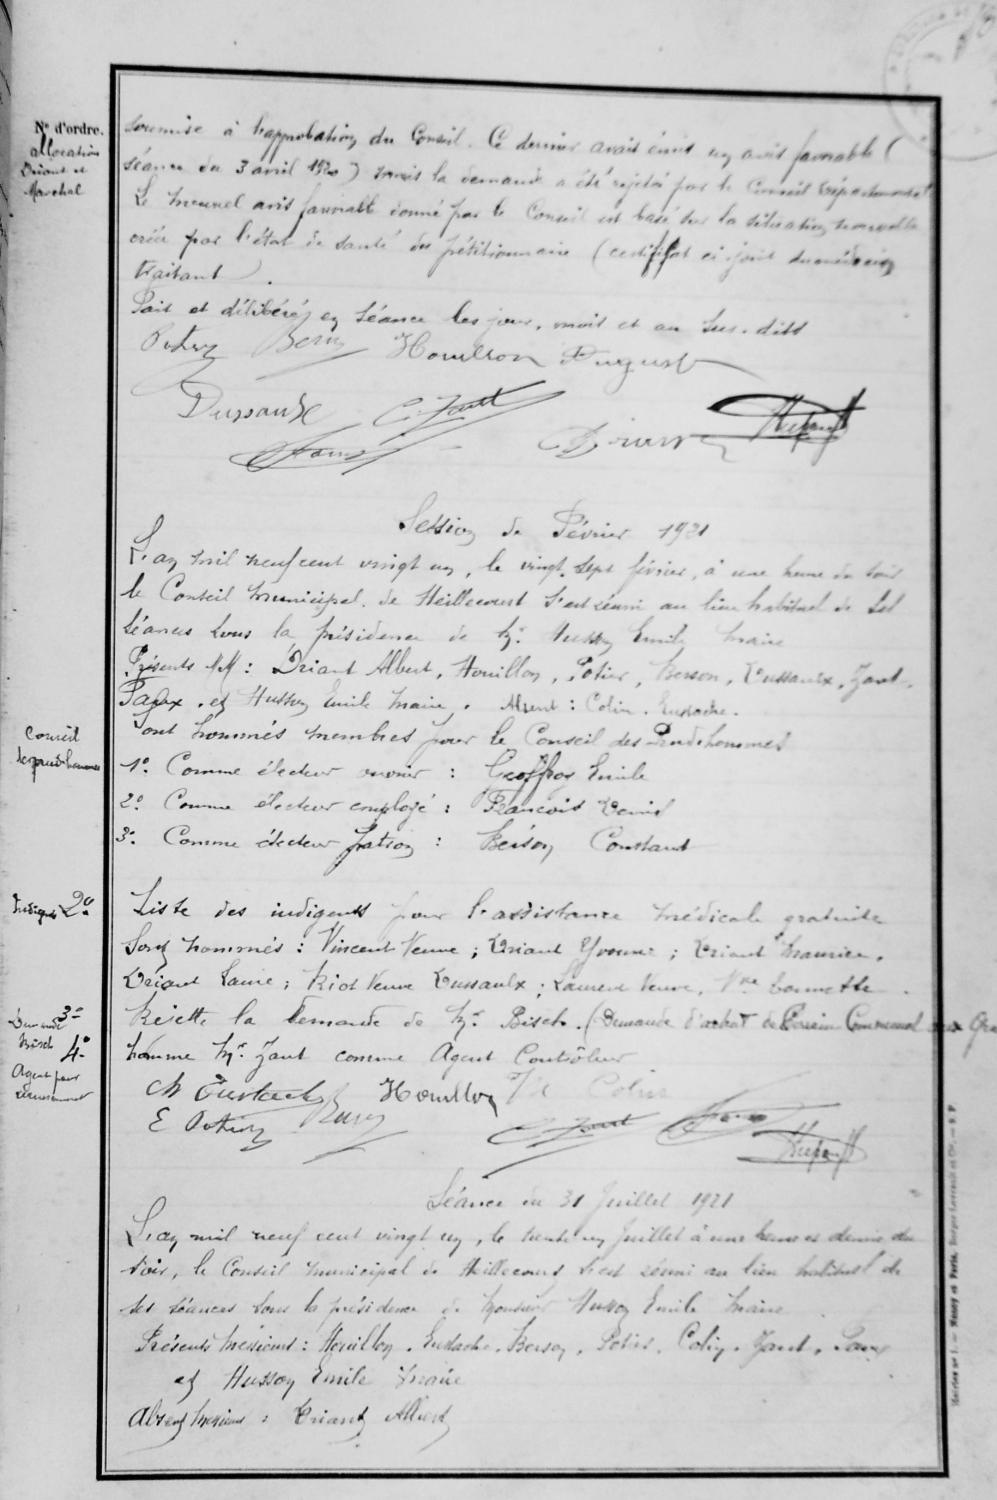 N° d'ordre.
allocation
Driant et
Maréchal
soumise à l'approbation du Conseil. Ce dernier avait émis un avis favorable (
séance du 3 avril 1920) mais la demande a été rejetée par le Conseil départemental
Le nouvel avis favorable donné par le Conseil est basé sur la situation nouvelle
créée par l'état de santé du pétitionnaire (certificat ci-joint du médecin
traitant).
Fait et délibéré en séance les jour, mois et an sus-dits
Houillon
Dussaulx C. Jant
Session de Février 1921
L'an mil neuf cent vingt un, le vingt sept février, à une heure du soir
le Conseil municipal de Heillecourt s'est réuni au lieu habituel de ses
séances sous la présidence de Mr. Husson Emile maire
Présents MM : Driant Albert, Houillon, Potier, Berson, Dussaulx, Jant,
et Husson Emile maire. Absent : Colin. Eustache.
Conseil
des prud'hommes
Sont nommés membres pour le Conseil des Prud'hommes
1° Comme électeur ouvrier : Geoffroy Emile
2° Comme électeur employé : François Denis
3° Comme électeur patron : Berson Constant
Indigents 2°
Liste des indigents pour l'assistance médicale gratuite
Sont nommés : Vincent Veuve ; Driant Yvonne ; Driant Maurice,
Driant Laure ; Riot Veuve Dussaulx ; Laurent Veuve, Vve
3°
Demande
Bisch
Rejette la demande de Mr. Bisch. (Demande d'achat de Terrain Communal
4°
Agent pour
nomme Mr. Jant comme Agent Contrôleur
Ch Eustache Houillon Colin
E Potier C. Jant
Séance du 31 Juillet 1921
L'an mil neuf cent vingt un, le trente un Juillet à une heure et demie du
soir, le Conseil municipal de Heillecourt s'est réuni au lieu habituel de
ses séances sous la présidence de Monsieur Husson Emile maire
Présents Messieurs : Houillon, Eustache, Berson, Potier, Colin, Jant,
et Husson Emile maire
Absent Messieurs : Driant Albert